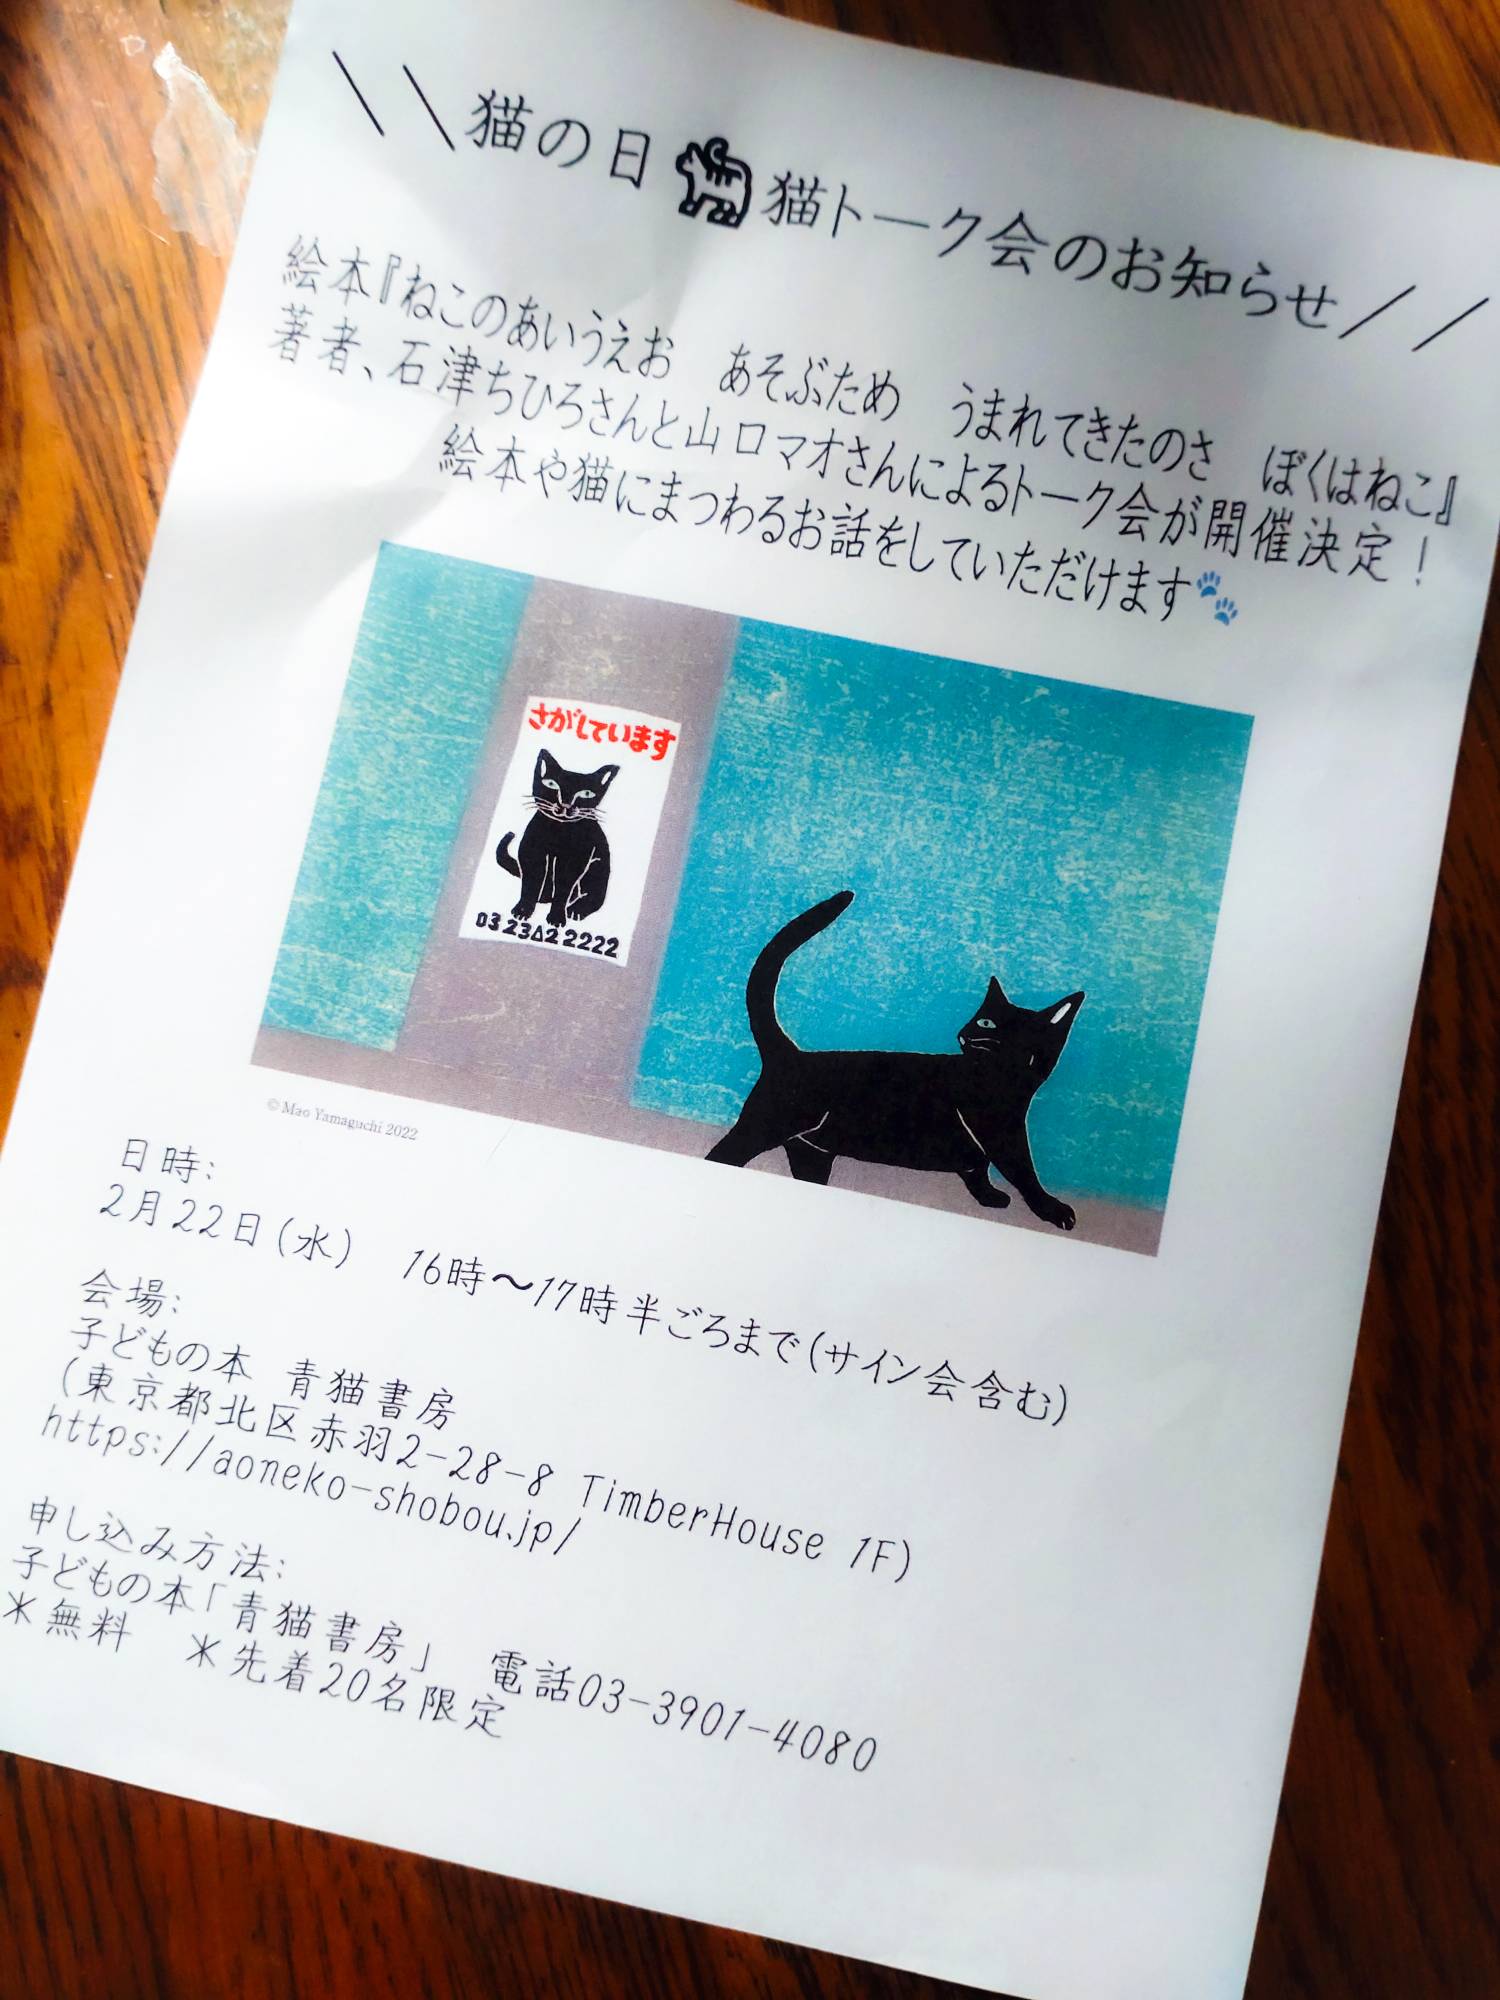 \\猫の日🐈猫トーク会のお知らせ//
絵本『ねこのあいうえお　あそぶため　うまれてきたのさ　ぼくはねこ』
著者、石津ちひろさんと山口マオさんによるトーク会が開催決定！
絵本や猫にまつわるお話をしていただけます🐾
さがしています
03 23△2 2222
© Mao Yamaguchi 2022
日時：
2月22日（水）　16時〜17時半ごろまで（サイン会含む）
会場：
子どもの本　青猫書房
（東京都北区赤羽2-28-8 TimberHouse 1F）
https://aoneko-shobou.jp/
申し込み方法：
子どもの本「青猫書房」　電話03-3901-4080
＊無料　＊先着20名限定